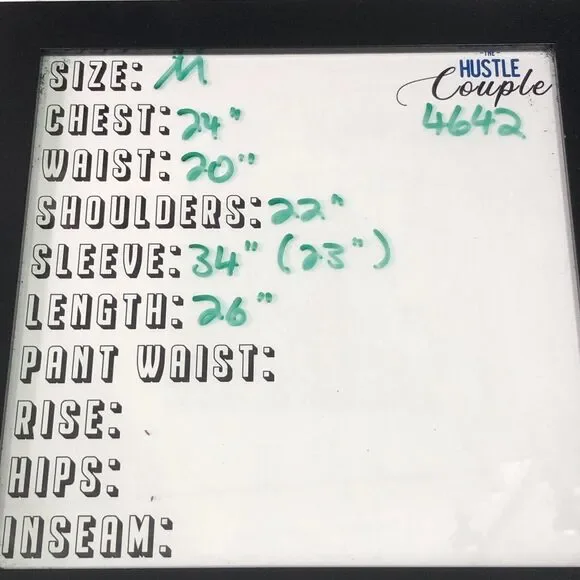 THE
HUSTLE
Couple
4642
SIZE: M
CHEST: 24"
WAIST: 20"
SHOULDERS: 22"
SLEEVE: 34" (23")
LENGTH: 26"
PANT WAIST:
RISE:
HIPS:
INSEAM: